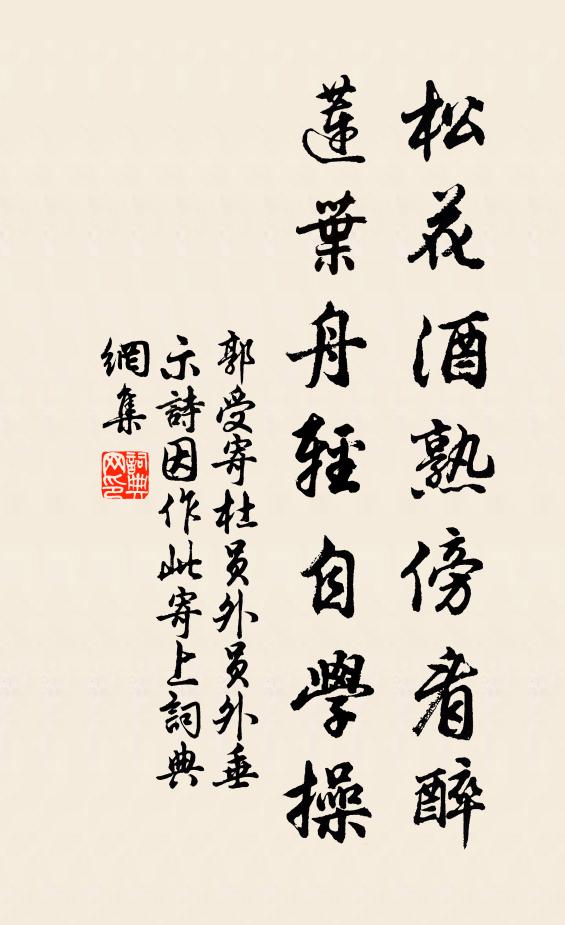 松花酒熟傍看醉
蓮葉舟輕自學操
郭受寄杜員外員外垂
示詩因作此寄上詞典
網集
詞典網印